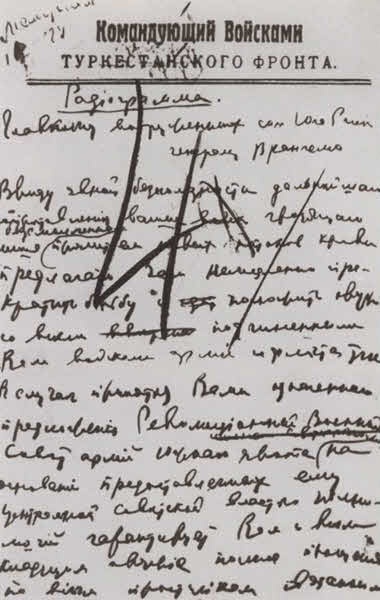 Командующий Войсками
ТУРКЕСТАНСКОГО ФРОНТА.
Радіограмма.
Главкому вооруженных сил Юга России
генералу Врангелю
Ввиду явной бесполезности дальнейшаго
сопротивления ваших войск грозящаго
лишь пролитием новых потоков крови
предлагаю Вам немедленно пре-
кратить борьбу и положить оружие
со всеми подчиненными
Вам войсками армии и флота
В случае принятия Вами означеннаго
предложения Революционный Военный
Совет армий южнаго фронта на
основании предоставленных ему
центральной Советской властью полно-
мочий гарантирует Вам и всем
кладущим оружие полное прощение
по всем проступкам связанным